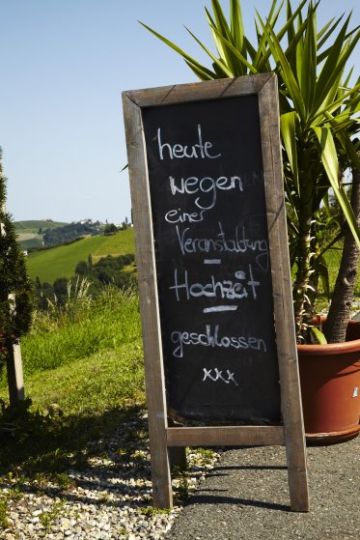 heute
wegen
einer
Veranstaltung
–
Hochzeit
geschlossen
xxx